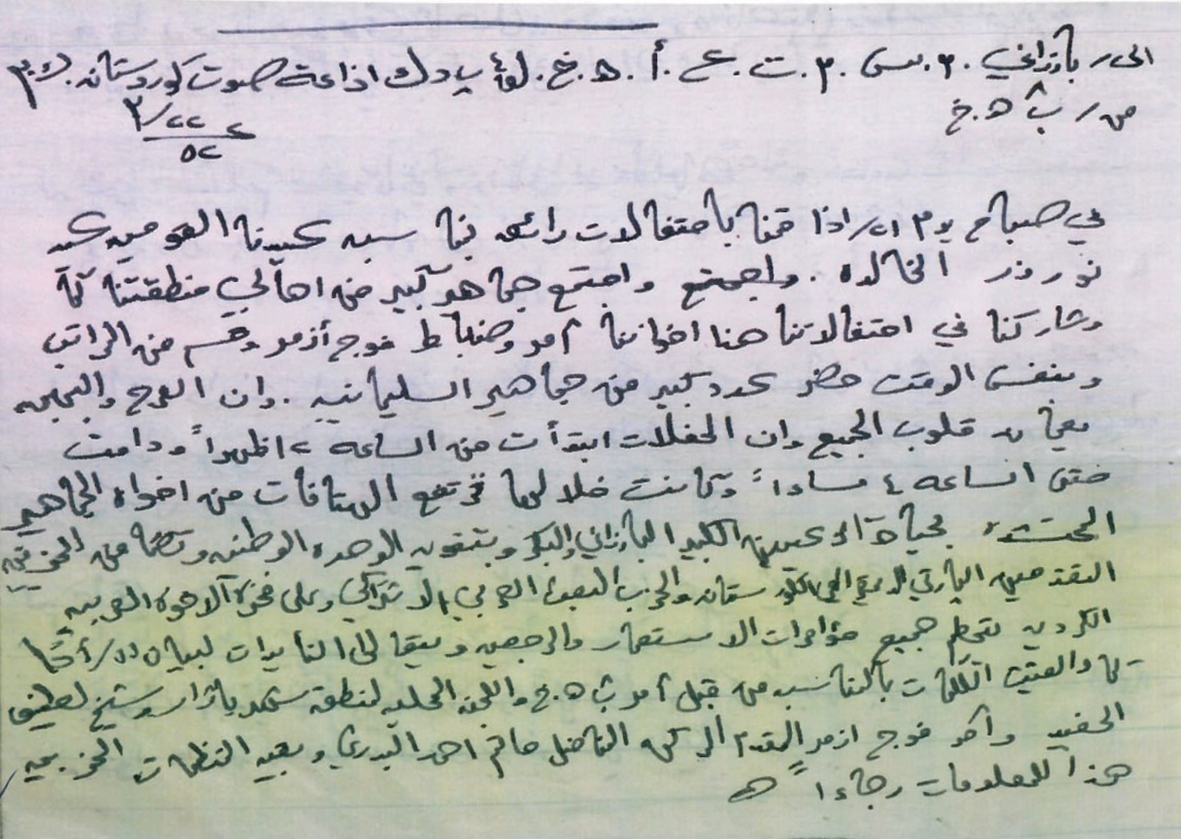 الى/ بارزاني . م.س . م.ت . ع.أ . هـ.خ . لقاء يادك اذاعة صوت كوردستان . ك.م
من / ب هـ.خ
٢٢/٣
٥٢
في صباح يوم ٢١/اذار قمنا باحتفالات رائعه بمناسبه عيدنا القومي عيد
نوروز الخالده . واجمتع واجتمع جماهير كبير من اهالي منطقتنا كما
وشاركنا في احتفالاتنا هنا اخواننا آمر وضباط فوج أزمر وقسم من المراتب
وبنفس الوقت حضر عدد كبير من جماهير السليمانيه . وان الفرح والبهجه
يغمان قلوب الجميع وان الحفلات ابتدأت من الساعه ١٢ ظهراً ودامت
حتى الساعه ٤ مساءاً وكانت خلالها ترتفع الهتافات من افواه الجماهير
المحتشده بحياة الكبير البارزاني والبكر وبتقويه الوحده الوطنيه وتضامن الحزبين
التقدميين البارتي الديمقراطي الكوردستاني والحزب البعث العربي الاشتراكي وعلى الاخوة العربيه
الكرديه لتحطم جميع مؤامرات الاستعمار والرجعيه التايدات لبيان ١١/أذار
كما والقيت الكلمات بالمناسبه من قبل آمر ب هـ.خ واللجنه المحليه لمنطقة شيخ لطيف
الحفيد وآمر فوج ازمر المقدم الركن المناضل حاتم احمد البدري وبقيه المنظمات الحزبيه
هذا للمعلومات رجاءاً